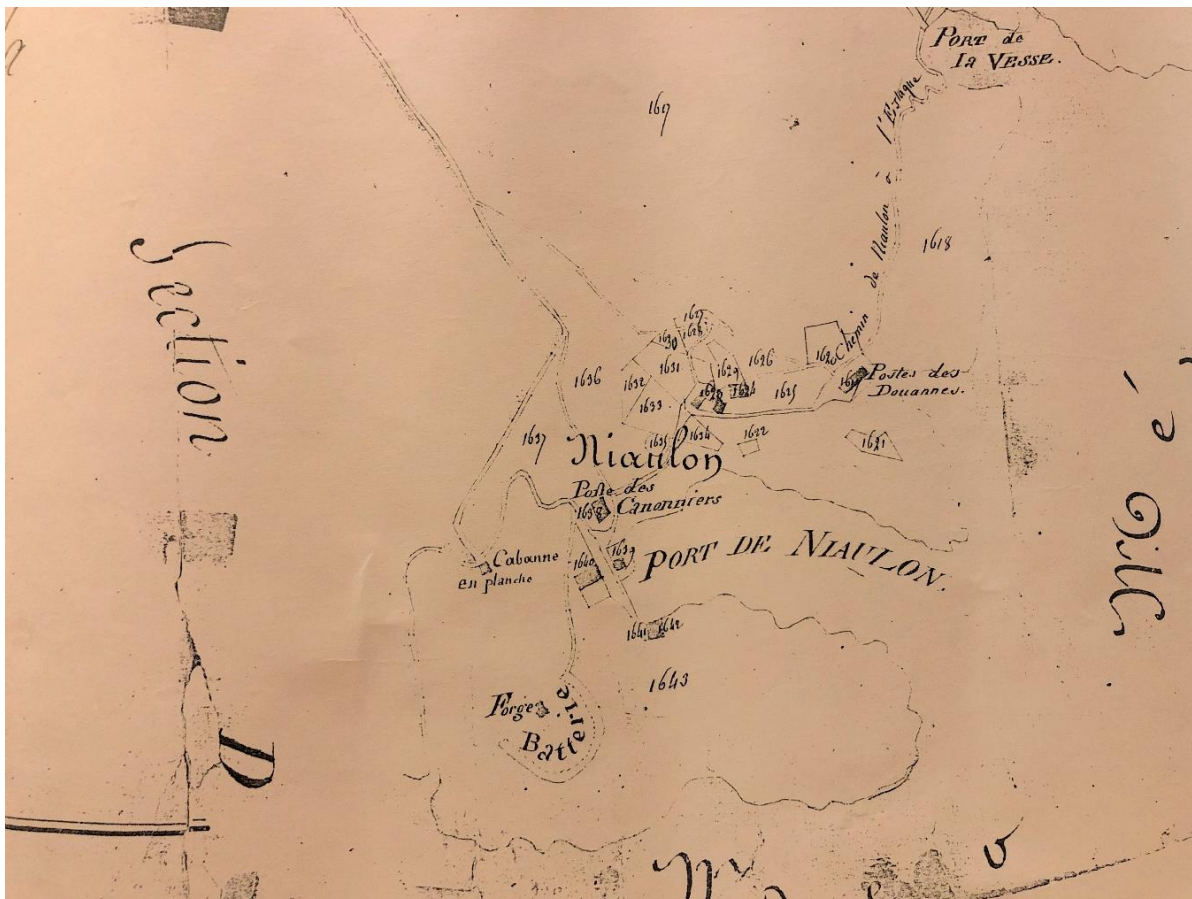 PORT de
la VESSE.
1617
Chemin de Niaulon à l'Estaque
1618
Section
1627
1628
1630
1631
1629
1626
1620
1636
1632
1624
1625
Postes des
Douannes.
1633
1637
1635
1634
1622
1621
Niaulon
Poste des
Canonniers
1638
PORT DE NIAULON.
Cabanne
en planche
1640
1639
1641
1642
1643
Forge
Batterie
D